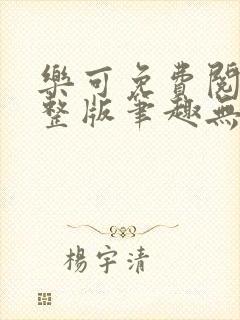 樂可免費閱
整版筆趣無
楊宇清